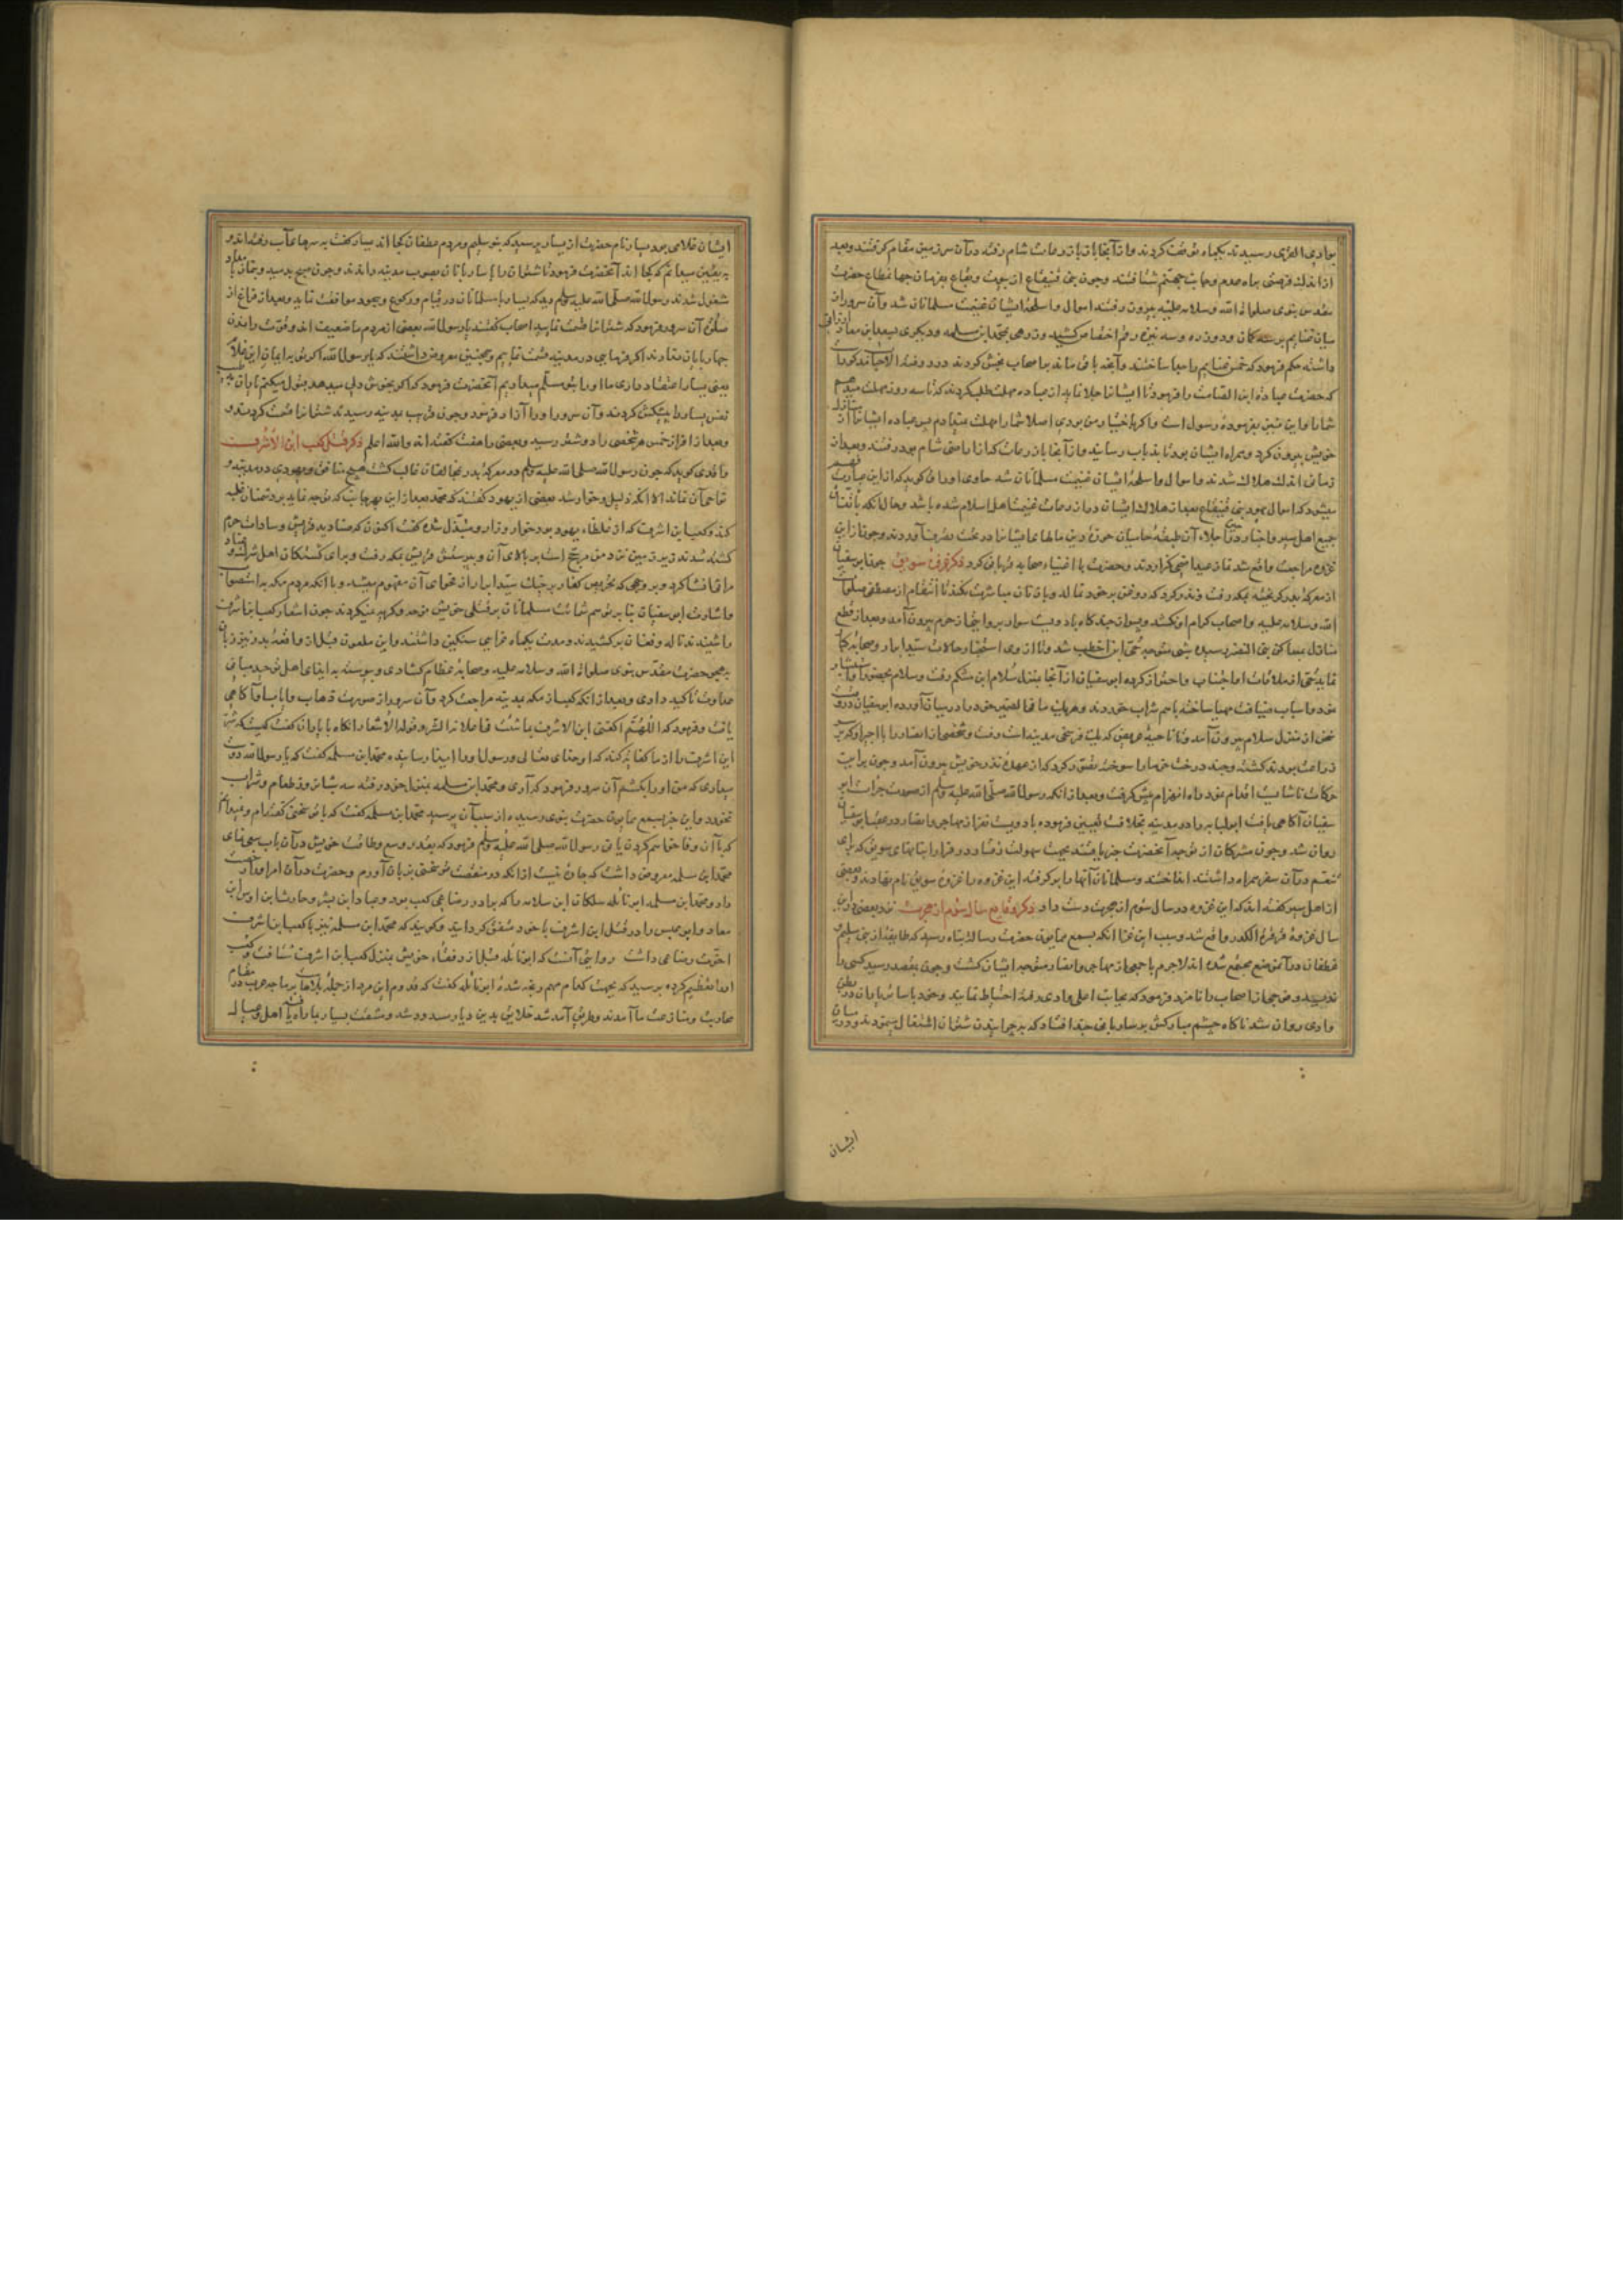 بوادی القری رسیدند یکماه توقف کردند و از آنجا باذرعات شام رفته در آن سرزمین مقام گرفتند و بعد
از اندک فرصتی براه عدم و عذاب جهنم شتافتند و چون بنی قینقاع از بیوت و بقاع بفرمان جهانمطاع حضرت
مقدس نبوی صلوات الله و سلامه علیه بیرون رفتند اموال و اسلحه ایشان غنیمت مسلمانان شد و آن سرور از
میان غنایم برسه کمان و دو زره و سه نیزه رقم اختصاص کشید و زرهی بمحمد ابن مسلمه و دیگری بسعد ابن معاذ ارزانی
داشته حکم فرمود که خمس غنایم را جدا ساختند و آنچه باقی ماند بر اصحاب بخش کردند در روضة الاحباب مذکور است
که حضرت عباده ابن الصامت را فرمود تا ایشانرا جلا نماید از عباده مهلت طلب کردند که تا سه روز مهلت میدهم
شما را و این نیز بفرموده رسول است و اگر باختیار من بودی اصلا شما را مهلت نمیدادم پس عباده ایشانرا از منازل
خویش بیرون کرد و همراه ایشان بود تا بذباب رسانید و از آنجا باذرعات که از اراضی شام بود رفتند و بعد از
زمانی اندک هلاک شدند و اموال و اسلحه ایشان غنیمت مسلمانان شد حاوی اوراق گوید که از این عبارت فهم
میشود که اموال یهود بنی قینقاع بعد از هلاک ایشان در اذرعات غنیمت اهل اسلام شده باشد و حال آنکه باتفاق
جمیع اهل سیر و اخبار در حین جلاء آن طبقه حامیان حوزه دین مالهای ایشانرا در تحت تصرف آوردند و چون از این
غزوه مراجعت واقع شد نماز عید اضحی گزاردند و حضرت با اغنیاء صحابه قربانی کرد ذکر غزوه سویق چون ابو سفیان
از معرکه بدر گریخته بمکه رفت و نذر کرد که روغن بر خود نمالد و با زنان مباشرت نکند تا انتقام از مصطفی صلوات
الله و سلامه علیه و اصحاب کرام او نکشد و پس از چند گاه با دویست سوار بروایتی از حرم بیرون آمد و بعد از قطع
منازل بمساکن بنی النضیر رسیده شبی متوجه حیی ابن اخطب شد تا از وی استخبار حالات سید ابرار و صحابه کبار
نماید حیی از ملاقات او اجتناب و احتراز کرده ابو سفیان از آنجا بمنزل سلام ابن مشکم رفت و سلام
نمود و اسباب ضیافت مهیا ساخته باهم شراب خوردند و هر باب ما فی الضمیر خود را در میان آورده ابو سفیان در وقت
سحر از منزل سلام بیرون آمد و تا ناحیه عریض که بیک فرسخی مدینه است رفت و شخصی از انصار را با اجیر او که بر سر
زراعت بودند کشته و چند درخت خرما را سوخته تصور کرد که از عهده نذر خویش بیرون آمد و چون بر این
حرکات ناشایست اقدام نمود راه انهزام پیش گرفت و بعد از آنکه رسول الله صلی الله علیه و سلم از صورت جرأت ابو
سفیان آگاهی یافت ابولبابه را در مدینه بخلافت تعیین فرموده با دویست نفر از مهاجر و انصار در عقب ابو سفیان
روان شد و چون مشرکان از توجه آنحضرت خبر یافتند بجهت سهولت رفتار در فرار انبانهای سویق که برای
تنعم در آن سفر همراه داشتند انداختند و مسلمانان آنها را برگرفته این غزوه را غزوه سویق نام نهادند و بعضی
از اهل سیر گفته اند که این غزوه در سال سوم از هجرت دست داد ذکر وقایع سال سوم از هجرت نزد بعضی در این
سال غزوه قرقرة الکدر واقع شد و سبب این غزا آنکه بسمع همایون حضرت رسالت پناه رسید که طایفه از بنی سلیم و
غطفان در آن موضع مجتمع شده اند لاجرم با جمعی از مهاجر و انصار متوجه ایشان گشت و چون بمقصد رسید کسی را
ندید و بعضی از اصحاب را نامزد فرمود که بجانب اعلی وادی رفته احتیاط نمایند و خود با سائر یاران در بطن
وادی روان شد ناگاه چشم مبارکش بر ساربانی چند افتاد که بچرانیدن شتران اشتغال مینمودند و در میان
ایشان
ایشان غلامی بود یسار نام حضرت از یسار پرسید که بنو سلیم و مردم غطفان کجا اند یسار گفت بر سرهای آب رفته اند و
به یقین نمیدانم که کجا اند آنحضرت فرمود تا شتران را با ساربانان بصوب مدینه راندند و چون صبح بدمید و بنماز بامداد
مشغول شدند رسول الله صلی الله علیه و سلم دید که یسار با مسلمانان در قیام و رکوع و سجود موافقت نماید و بعد از فراغ از
صلوة آن سرور فرمود که شترانرا قسمت نمایید اصحاب گفتند یا رسول الله بعضی از مردم ما ضعیف اند و قوت راندن
چهارپایان ندارند اگر فرمایی در مدینه قسمت نماییم و همچنین معروض داشتند که یا رسول الله اگر ترا به ایمان این غلام
یعنی یسار اعتقاد داری ما او را بتو مسلم میداریم آنحضرت فرمود که اگر بخوش دلی میدهید قبول میکنم یاران بطیب
نفس یسار را پیشکش کردند و آن سرور او را آزاد فرمود و چون قریب بمدینه رسیدند شترانرا قسمت کردند و
و بعد از افراز خمس هر شخصی را دو شتر رسید و بعضی را هفت گفته اند و الله اعلم ذکر قتل کعب ابن الاشرف
واقدی گوید که چون رسول الله صلی الله علیه و سلم در معرکه بدر بمخالفان غالب گشت هیچ منافق و یهودی در مدینه و
نواحی آن نماند الا آنکه ذلیل و خوار شد بعضی از یهود گفتند که محمد بعد از این بهر جانب که توجه نماید بر دشمنان غلبه
کند و کعب ابن اشرف که از عظماء یهود بود خوار و زار و مبتذل شده گفت اکنون که صنادید قریش و سادات حرم
کشته شدند زیر زمین نزد من مرجح است بر بالای آن و بپرسش قریش بمکه رفت و برای کشتگان اهل شرک
مراثی انشا کرد و بر وجهی که تحریص کفار بر جنگ سید ابرار از فحوای آن مفهوم میشد و با آنکه مردم مکه
و اشارت ابو سفیان بنا بر توهم شماتت مسلمانان بر قتلی خویش نوحه و گریه نمیکردند چون اشعار کعب ابن اشرف
را شنیدند ناله و فغان برکشیدند و مدت یکماه عزای سنگین داشتند و این ملعون قبل از واقعه بدر نیز زبان
بهجو حضرت مقدس نبوی صلوات الله و سلامه علیه و صحابه عظام گشادی و پیوسته به ایذای اهل توحید مبانی
عداوت تاکید دادی و بعد از آنکه کعب از مکه بمدینه مراجعت کرد و آن سرور از صورت ذهاب و ایاب او آگاهی
یافت و فرمود که اللهم اکفنی ابن الاشرف بما شئت فی اعلانه الشر و قوله الاشعار آنگاه با یاران گفت کیست که شر
ابن اشرف را از ما کفایت کند که او خدای تعالی و رسول او را ایذا رسانیده محمد ابن مسلمه گفت که یا رسول الله دوست
میداری که من او را بکشم آن سرور فرمود که آری و محمد ابن مسلمه بمنزل خود رفته سه شبانروز طعام و شراب
نخورد و این خبر بسمع همایون حضرت نبوی رسیده از سبب آن پرسید محمد ابن مسلمه گفت که یا رسول الله سخنی گفته ام و نمیدانم
که با آن وفا خواهم کرد یا نی رسول الله صلی الله علیه و سلم فرمود که بقدر وسع و طاقت خویش در آن باب سعی نمای
محمد ابن مسلمه معروض داشت که چاره نیست از آنکه در منقصت تو سخنی بزبان آورم و حضرت در آن امر او را رخصت
داد و محمد ابن مسلمه ابو نائله سلکان ابن سلامه را که برادر رضاعی کعب بود و عباد ابن بشر و حارث ابن اوس ابن
معاذ و ابو عبس را در قتل ابن اشرف با خود متفق گردانید و گویند که محمد ابن مسلمه نیز با کعب ابن اشرف
اخوت رضاعی داشت روایتی آنست که ابو نائله قبل از رفقاء خویش بمنزل کعب ابن اشرف شتافت و کعب
او را تعظیم کرده پرسید که بجهت کدام مهم رنجه شده ابو نائله گفت که قدوم این مرد از جمله بلاهاست بر ما چه عرب در مقام
محاربت و منازعت ما آمدند و طریق آمد شد خلایق بدین دیار مسدود شد و مشقت بسیار بما راه یافت و اهل و عیال